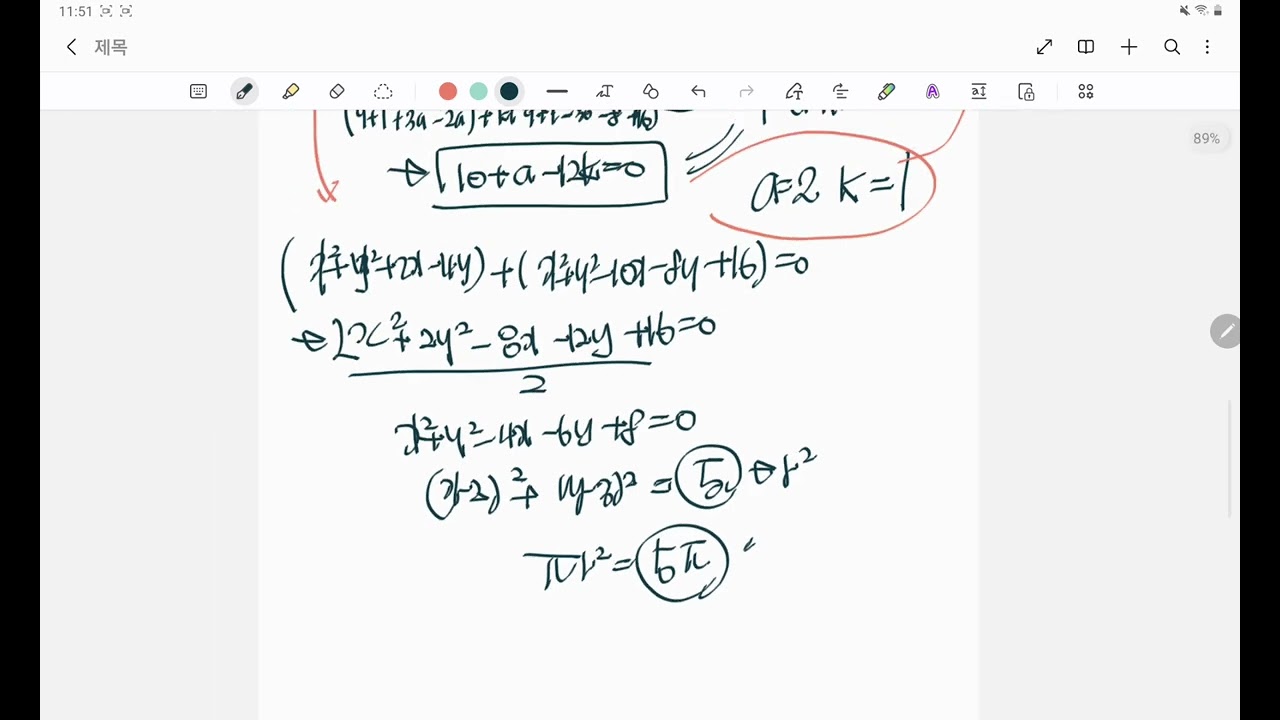 11:51
제목
89%
→ 10+a-12k=0
a=2 k=1
(x²+y²+2x-4y)+(x²+y²-10x-8y+16)=0
→ 2x²+2y²-8x-12y+16=0
2
x²+y²-4x-6y+8=0
(x-2)²+(y-3)²=5 → r²
πr²=5π